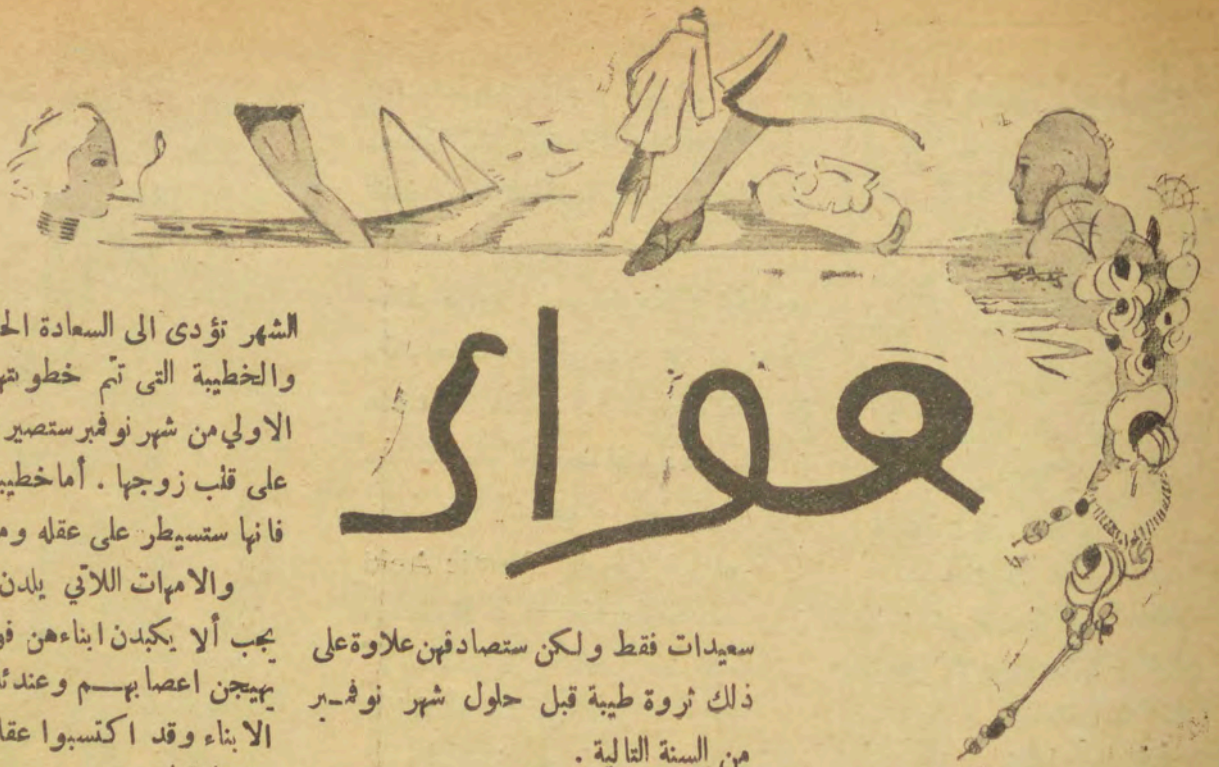 سعيدات فقط ولكن ستصادفهن علاوة على
ذلك ثروة طيبة قبل حلول شهر نوفمبر
من السنة التالية .
الشهر تؤدى الى السعادة
والخطيبة التى تتم
الاولي من شهر نوفمبر ستصير
على قلب زوجها . أما
فانها ستسيطر على عقله
والامهات اللاتي يلدن
يجب ألا يكبدن ابناءهن
يهيجن اعصابهم
الابناء وقد اكتسبوا